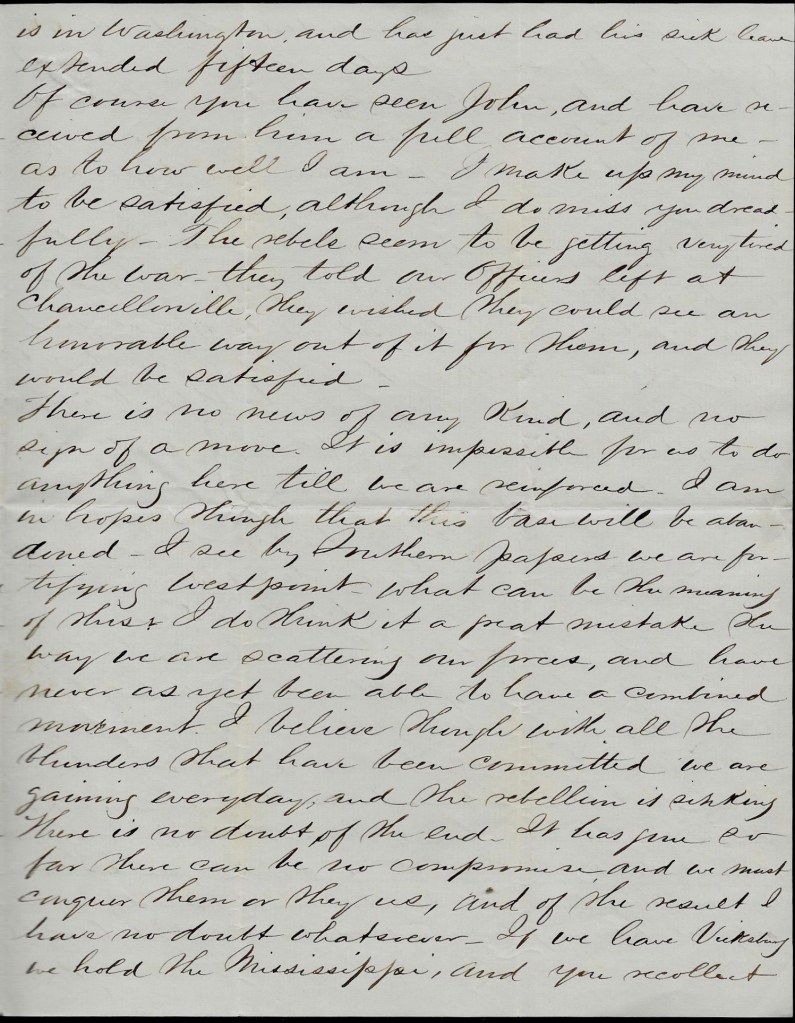 is in Washington, and has just had his sick leave
extended fifteen days
Of course you have seen John, and have re-
ceived from him a full account of me -
as to how well I am - I make up my mind
to be satisfied, although I do miss you dread-
fully - The rebels seem to be getting very tired
of the war - they told our Officers left at
Chancellorville, they wished they could see an
honorable way out of it for them, and they
would be satisfied -
There is no news of any Kind, and no
sign of a move. It is impossible for us to do
anything here till we are reinforced - I am
in hopes though that this base will be aban-
doned - I see by Southern papers we are for-
tifying Westpoint - what can be the meaning
of this & I do think it a great mistake the
way we are scattering our forces, and have
never as yet been able to have a combined
movement. I believe though with all the
blunders that have been committed we are
gaining everyday, and the rebellion is sinking
There is no doubt of the end - It has gone so
far there can be no compromise and we must
conquer them or they us, and of the result I
have no doubt whatsoever - If we have Vicksburg
we hold the Mississippi, and you recollect